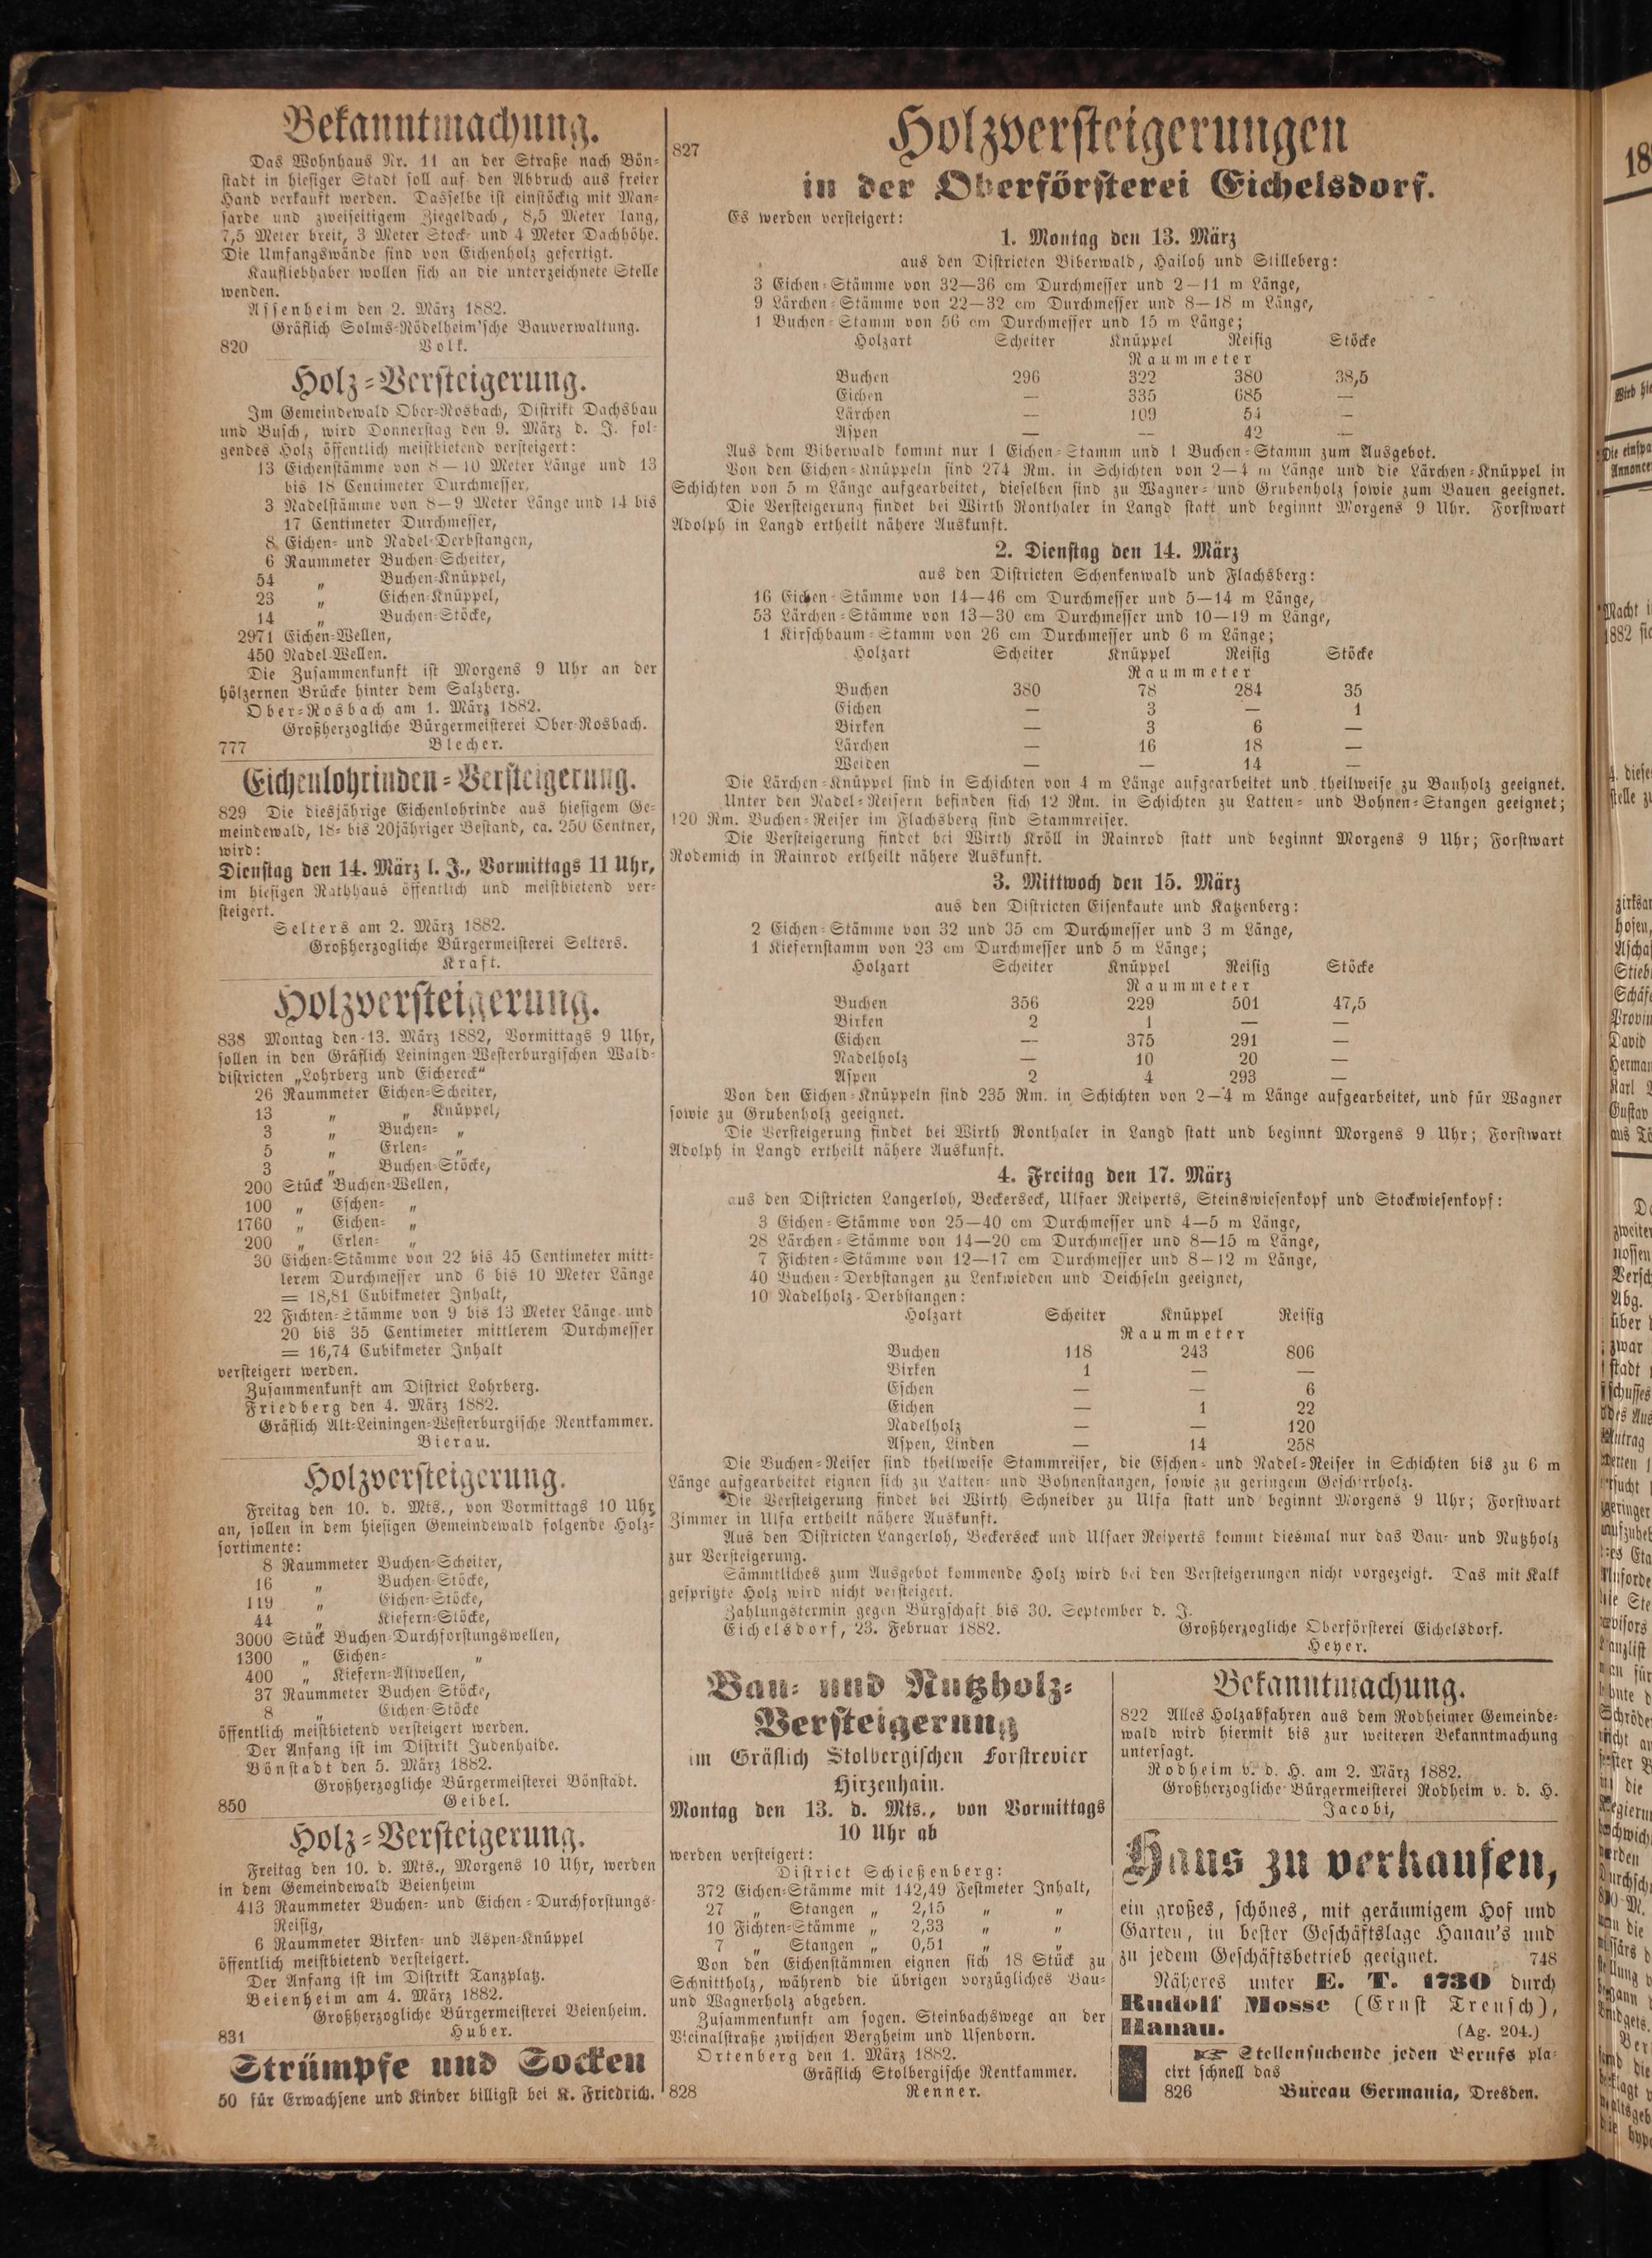 Bekanntmachung.
Das Wohnhaus Nr. 11 an der Straße nach Bön-
stadt in hiesiger Stadt soll auf den Abbruch aus freier
Hand verkauft werden. Dasselbe ist einstöckig mit Man-
sarde und zweiseitigem Ziegeldach, 8,5 Meter lang,
7,5 Meter breit, 3 Meter Stock- und 4 Meter Dachhöhe.
Die Umfangswände sind von Eichenholz gefertigt.
Kaufliebhaber wollen sich an die unterzeichnete Stelle
wenden.
Assenheim den 2. März 1882.
Gräflich Solms-Rödelheim'sche Bauverwaltung.
820 Volk.
Holz-Versteigerung.
Im Gemeindewald Ober-Rosbach, Distrikt Dachsbau
und Busch, wird Donnerstag den 9. März d. J. fol-
gendes Holz öffentlich meistbietend versteigert:
13 Eichenstämme von 8—10 Meter Länge und 13
bis 18 Centimeter Durchmesser,
3 Nadelstämme von 8—9 Meter Länge und 14 bis
17 Centimeter Durchmesser,
8 Eichen- und Nadel-Derbstangen,
6 Raummeter Buchen-Scheiter,
54 „ Buchen-Knüppel,
23 „ Eichen-Knüppel,
14 „ Buchen-Stöcke,
2971 Eichen-Wellen,
450 Nadel-Wellen.
Die Zusammenkunft ist Morgens 9 Uhr an der
hölzernen Brücke hinter dem Salzberg.
Ober-Rosbach am 1. März 1882.
Großherzogliche Bürgermeisterei Ober-Rosbach.
777 Blecher.
Eichenlohrinden-Versteigerung.
829 Die diesjährige Eichenlohrinde aus hiesigem Ge-
meindewald, 18- bis 20jähriger Bestand, ca. 250 Centner,
wird:
Dienstag den 14. März l. J., Vormittags 11 Uhr,
im hiesigen Rathhaus öffentlich und meistbietend ver-
steigert.
Selters am 2. März 1882.
Großherzogliche Bürgermeisterei Selters.
Kraft.
Holzversteigerung.
838 Montag den 13. März 1882, Vormittags 9 Uhr,
sollen in den Gräflich Leiningen-Westerburgischen Wald-
districten „Lohrberg und Eichereck“
26 Raummeter Eichen-Scheiter,
13 „ „ Knüppel,
3 „ Buchen- „
5 „ Erlen- „
3 „ Buchen-Stöcke,
200 Stück Buchen-Wellen,
100 „ Eschen- „
1760 „ Eichen- „
200 „ Erlen- „
30 Eichen-Stämme von 22 bis 45 Centimeter mitt-
lerem Durchmesser und 6 bis 10 Meter Länge
= 18,81 Cubikmeter Inhalt,
22 Fichten-Stämme von 9 bis 13 Meter Länge und
20 bis 35 Centimeter mittlerem Durchmesser
= 16,74 Cubikmeter Inhalt
versteigert werden.
Zusammenkunft am District Lohrberg.
Friedberg den 4. März 1882.
Gräflich Alt-Leiningen-Westerburgische Rentkammer.
Bierau.
Holzversteigerung.
Freitag den 10. d. Mts., von Vormittags 10 Uhr
an, sollen in dem hiesigen Gemeindewald folgende Holz-
sortimente:
8 Raummeter Buchen-Scheiter,
16 „ Buchen-Stöcke,
119 „ Eichen-Stöcke,
44 „ Kiefern-Stöcke,
3000 Stück Buchen-Durchforstungswellen,
1300 „ Eichen- „
400 „ Kiefern-Astwellen,
37 Raummeter Buchen-Stöcke,
8 „ Eichen-Stöcke
öffentlich meistbietend versteigert werden.
Der Anfang ist im Distrikt Judenhaide.
Bönstadt den 5. März 1882.
Großherzogliche Bürgermeisterei Bönstadt.
850 Geibel.
Holz-Versteigerung.
Freitag den 10. d. Mts., Morgens 10 Uhr, werden
in dem Gemeindewald Beienheim
413 Raummeter Buchen- und Eichen-Durchforstungs-
Reisig,
6 Raummeter Birken- und Aspen-Knüppel
öffentlich meistbietend versteigert.
Der Anfang ist im Distrikt Tanzplatz.
Beienheim am 4. März 1882.
Großherzogliche Bürgermeisterei Beienheim.
831 Huber.
Strümpfe und Socken
50 für Erwachsene und Kinder billigst bei K. Friedrich.
827 Holzversteigerungen
in der Oberförsterei Eichelsdorf.
Es werden versteigert:
1. Montag den 13. März
aus den Districten Biberwald, Hailoh und Stilleberg:
3 Eichen-Stämme von 32—36 cm Durchmesser und 2—11 m Länge,
9 Lärchen-Stämme von 22—32 cm Durchmesser und 8—18 m Länge,
1 Buchen-Stamm von 56 cm Durchmesser und 15 m Länge;
Holzart Scheiter Knüppel Reisig Stöcke
Raummeter
Buchen 296 322 380 38,5
Eichen — 335 685 —
Lärchen — 109 54 —
Aspen — — 42 —
Aus dem Biberwald kommt nur 1 Eichen-Stamm und 1 Buchen-Stamm zum Ausgebot.
Von den Eichen-Knüppeln sind 274 Rm. in Schichten von 2—4 m Länge und die Lärchen-Knüppel in
Schichten von 5 m Länge aufgearbeitet, dieselben sind zu Wagner- und Grubenholz sowie zum Bauen geeignet.
Die Versteigerung findet bei Wirth Ronthaler in Langd statt und beginnt Morgens 9 Uhr. Forstwart
Adolph in Langd ertheilt nähere Auskunft.
2. Dienstag den 14. März
aus den Districten Schenkenwald und Flachsberg:
16 Eichen-Stämme von 14—46 cm Durchmesser und 5—14 m Länge,
53 Lärchen-Stämme von 13—30 cm Durchmesser und 10—19 m Länge,
1 Kirschbaum-Stamm von 26 cm Durchmesser und 6 m Länge;
Holzart Scheiter Knüppel Reisig Stöcke
Raummeter
Buchen 380 78 284 35
Eichen — 3 — 1
Birken — 3 6 —
Lärchen — 16 18 —
Weiden — — 14 —
Die Lärchen-Knüppel sind in Schichten von 4 m Länge aufgearbeitet und theilweise zu Bauholz geeignet.
Unter den Nadel-Reisern befinden sich 12 Rm. in Schichten zu Latten- und Bohnen-Stangen geeignet;
120 Rm. Buchen-Reiser im Flachsberg sind Stammreiser.
Die Versteigerung findet bei Wirth Kröll in Rainrod statt und beginnt Morgens 9 Uhr; Forstwart
Rodemich in Rainrod ertheilt nähere Auskunft.
3. Mittwoch den 15. März
aus den Districten Eisenkaute und Katzenberg:
2 Eichen-Stämme von 32 und 35 cm Durchmesser und 3 m Länge,
1 Kiefernstamm von 23 cm Durchmesser und 5 m Länge;
Holzart Scheiter Knüppel Reisig Stöcke
Raummeter
Buchen 356 229 501 47,5
Birken 2 1 — —
Eichen — 375 291 —
Nadelholz — 10 20 —
Aspen 2 4 293 —
Von den Eichen-Knüppeln sind 235 Rm. in Schichten von 2—4 m Länge aufgearbeitet, und für Wagner
sowie zu Grubenholz geeignet.
Die Versteigerung findet bei Wirth Ronthaler in Langd statt und beginnt Morgens 9 Uhr; Forstwart
Adolph in Langd ertheilt nähere Auskunft.
4. Freitag den 17. März
aus den Districten Langerloh, Beckerseck, Ulfaer Reiperts, Steinswiesenkopf und Stockwiesenkopf:
3 Eichen-Stämme von 25—40 cm Durchmesser und 4—5 m Länge,
28 Lärchen-Stämme von 14—20 cm Durchmesser und 8—15 m Länge,
7 Fichten-Stämme von 12—17 cm Durchmesser und 8—12 m Länge,
40 Buchen-Derbstangen zu Lenkwieden und Deichseln geeignet,
10 Nadelholz-Derbstangen:
Holzart Scheiter Knüppel Reisig
Raummeter
Buchen 118 243 806
Birken 1 — —
Eschen — — 6
Eichen — 1 22
Nadelholz — — 120
Aspen, Linden — 14 258
Die Buchen-Reiser sind theilweise Stammreiser, die Eschen- und Nadel-Reiser in Schichten bis zu 6 m
Länge aufgearbeitet eignen sich zu Latten- und Bohnenstangen, sowie zu geringem Geschirrholz.
Die Versteigerung findet bei Wirth Schneider zu Ulfa statt und beginnt Morgens 9 Uhr; Forstwart
Zimmer in Ulfa ertheilt nähere Auskunft.
Aus den Districten Langerloh, Beckerseck und Ulfaer Reiperts kommt diesmal nur das Bau- und Nutzholz
zur Versteigerung.
Sämmtliches zum Ausgebot kommende Holz wird bei den Versteigerungen nicht vorgezeigt. Das mit Kalk
gespritzte Holz wird nicht versteigert.
Zahlungstermin gegen Bürgschaft bis 30. September d. J.
Eichelsdorf, 23. Februar 1882. Großherzogliche Oberförsterei Eichelsdorf.
Heyer.
Bau- und Nutzholz-
Versteigerung
im Gräflich Stolbergischen Forstrevier
Hirzenhain.
Montag den 13. d. Mts., von Vormittags
10 Uhr ab
werden versteigert:
District Schießenberg:
372 Eichen-Stämme mit 142,49 Festmeter Inhalt,
27 „ Stangen „ 2,15 „ „
10 Fichten-Stämme „ 2,33 „ „
7 „ Stangen „ 0,51 „ „
Von den Eichenstämmen eignen sich 18 Stück zu
Schnittholz, während die übrigen vorzügliches Bau-
und Wagnerholz abgeben.
Zusammenkunft am sogen. Steinbachswege an der
Vicinalstraße zwischen Bergheim und Usenborn.
Ortenberg den 1. März 1882.
Gräflich Stolbergische Rentkammer.
828 Renner.
Bekanntmachung.
822 Alles Holzabfahren aus dem Rodheimer Gemeinde-
wald wird hiermit bis zur weiteren Bekanntmachung
untersagt.
Rodheim v. d. H. am 2. März 1882.
Großherzogliche Bürgermeisterei Rodheim v. d. H.
Jacobi,
Haus zu verkaufen,
ein großes, schönes, mit geräumigem Hof und
Garten, in bester Geschäftslage Hanau's und
zu jedem Geschäftsbetrieb geeignet. 748
Näheres unter E. T. 1730 durch
Rudolf Mosse (Ernst Treusch),
Hanau. (Ag. 204.)
☞ Stellensuchende jeden Berufs pla-
cirt schnell das
826 Bureau Germania, Dresden.